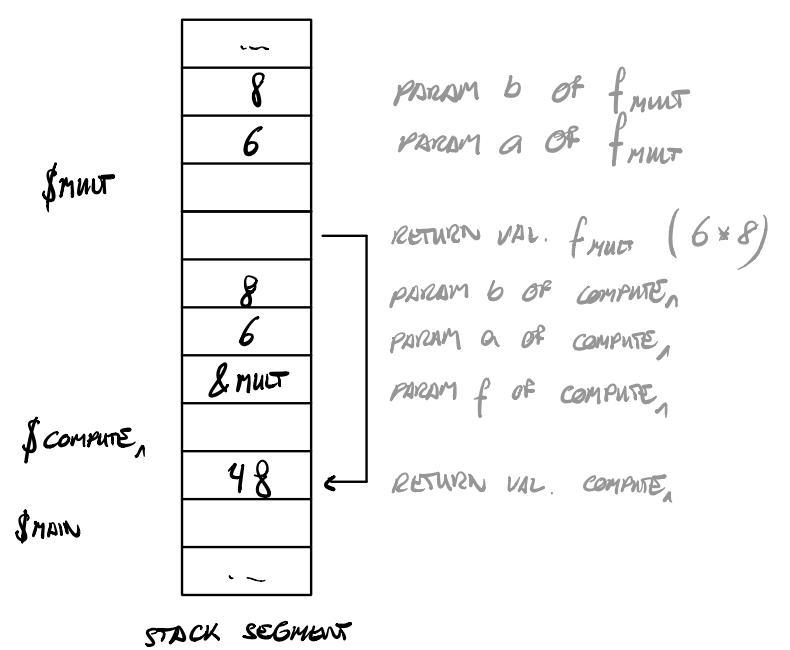 ...
8 PARAM b OF f MULT
6 PARAM a OF f MULT
$MULT
RETURN VAL. f MULT (6 * 8)
8 PARAM b OF COMPUTE1
6 PARAM a OF COMPUTE1
&MULT PARAM f OF COMPUTE1
$COMPUTE1
48 RETURN VAL. COMPUTE1
$MAIN
...
STACK SEGMENT